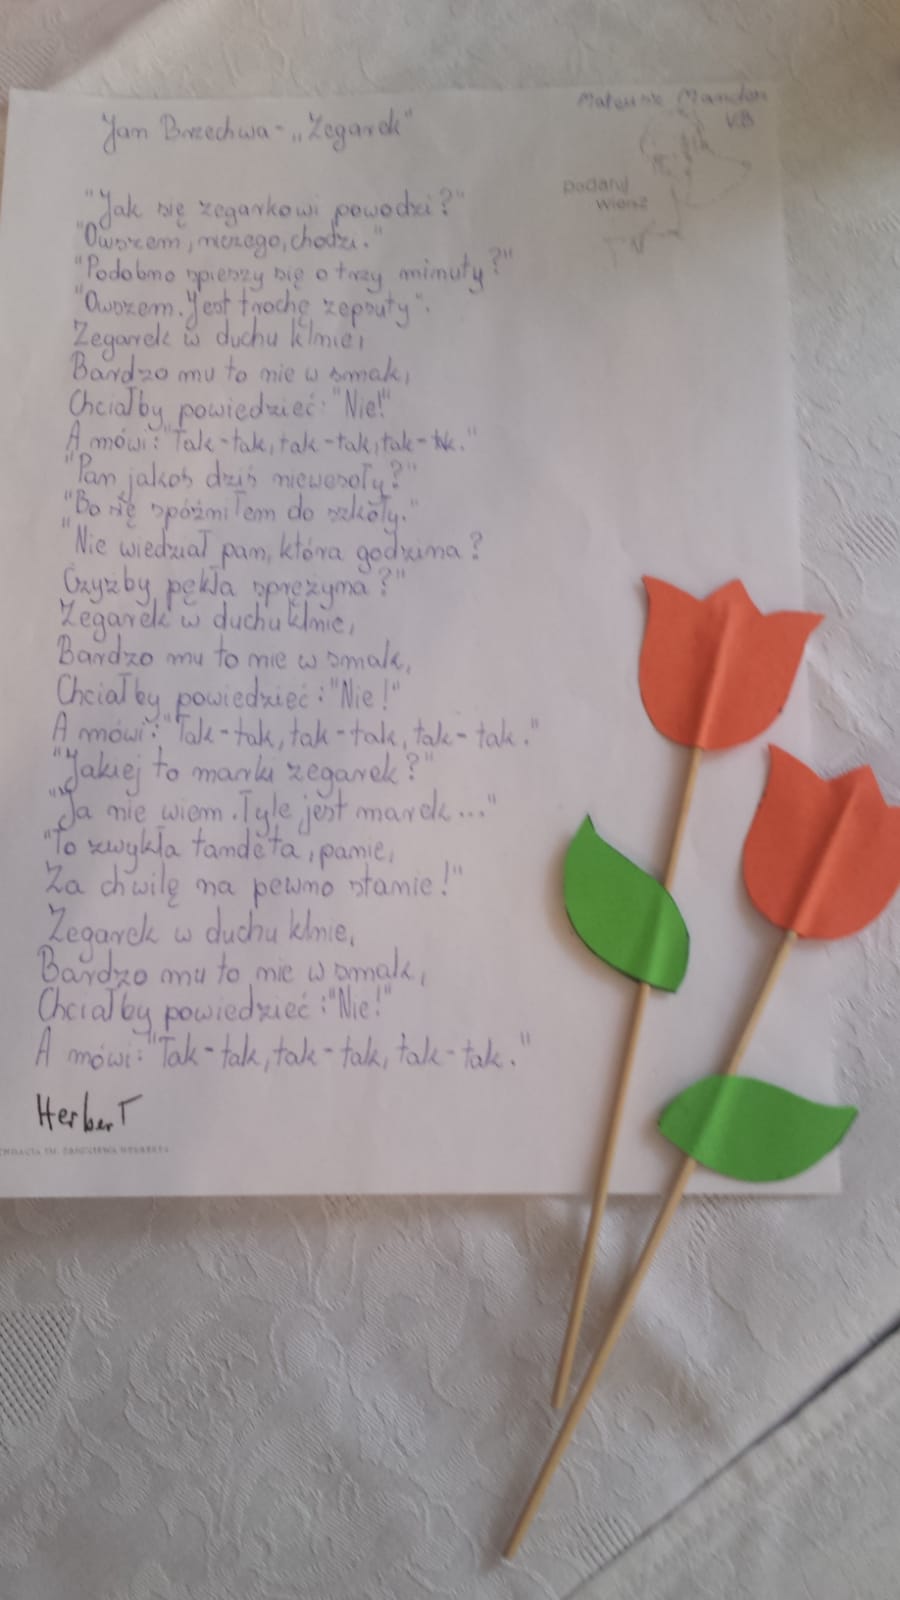 Jan Brzechwa - „Zegarek"
Mateusz
V.B
podaruj
wiersz
"Jak się zegarkowi powodzi?"
"Owszem, niczego, chodzi."
"Podobno spieszy się o trzy minuty?"
"Owszem. Jest trochę zepsuty".
Zegarek w duchu klnie,
Bardzo mu to nie w smak,
Chciałby powiedzieć: "Nie!"
A mówi: "Tak-tak, tak-tak, tak-tk."
"Pan jakoś dziś niewesoły?"
"Bo się spóźniłem do szkoły."
"Nie wiedział pan, która godzina?
Czyżby pękła sprężyna?"
Zegarek w duchu klnie,
Bardzo mu to nie w smak,
Chciałby powiedzieć: "Nie!"
A mówi: "Tak-tak, tak-tak, tak-tak."
"Jakiej to marki zegarek?"
"Ja nie wiem. Tyle jest marek..."
"To zwykła tandeta, panie,
Za chwilę na pewno stanie!"
Zegarek w duchu klnie,
Bardzo mu to nie w smak,
Chciałby powiedzieć: "Nie!"
A mówi: "Tak-tak, tak-tak, tak-tak."
HerberT